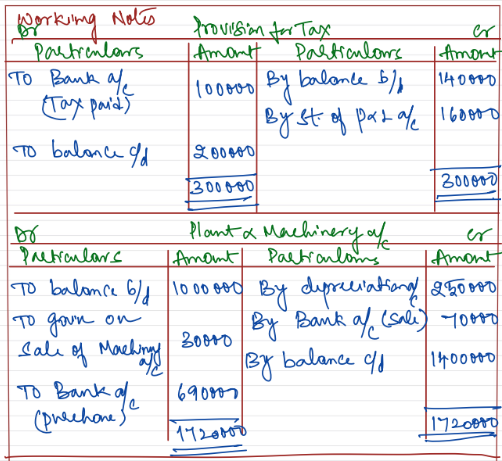 Working Notes
Dr Provision for Tax Cr
Particulars Amount Particulars Amount
To Bank a/c 100000 By balance b/d 140000
(Tax paid) By St. of P&L a/c 160000
To balance c/d 200000
300000 300000
Dr Plant & Machinery a/c Cr
Particulars Amount Particulars Amount
To balance b/d 1000000 By depreciation a/c 250000
To gain on By Bank a/c (Sale) 70000
Sale of Machinery a/c 30000 By balance c/d 1400000
To Bank a/c 690000
(purchase)
1720000 1720000